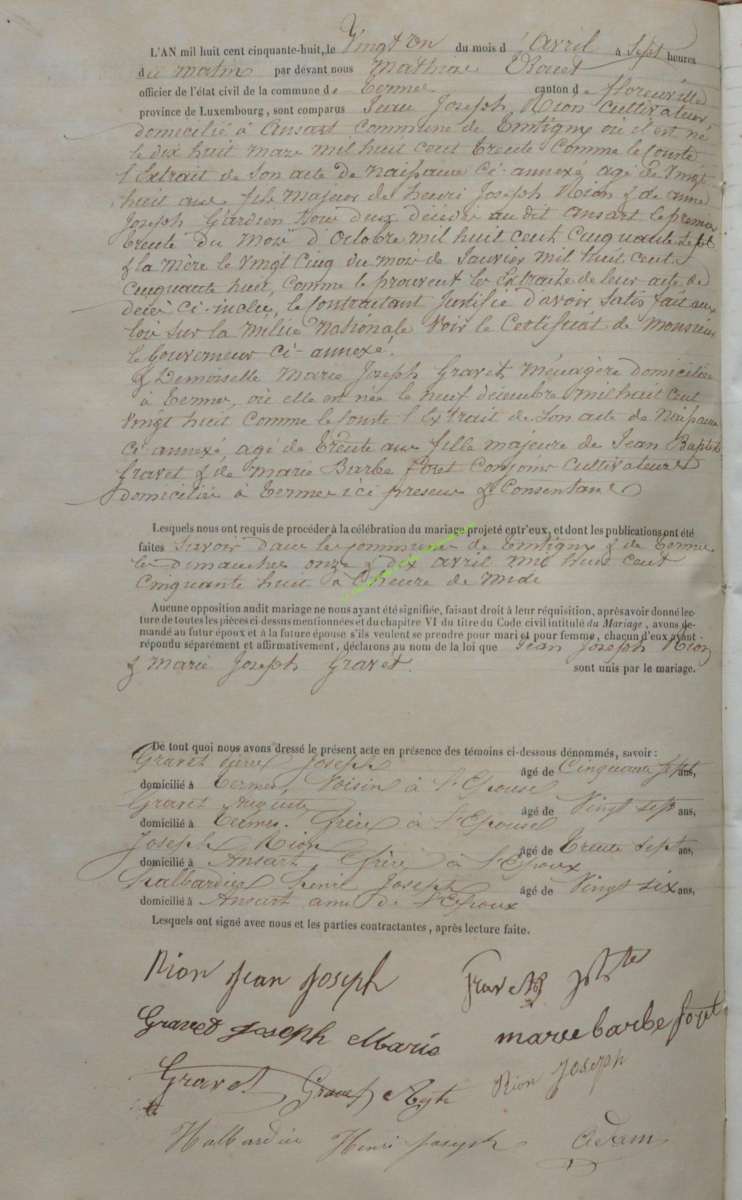 L'AN mil huit cent cinquante-huit, le Vingt un du mois d'Avril à Sept heures
du matin par devant nous Mathieu
officier de l'état civil de la commune de Termes canton de florenville
province de Luxembourg, sont comparus Jean Joseph Rion Cultivateur
domicilié à Ansart Commune de Tintigny où il est né
le dix huit mars mil huit cent trente Comme le Conste
l'Extrait de Son acte de Naissance Ci annexé, agé de Vingt
huit ans fils Majeur de henri Joseph Rion & de anne
Joseph tous deux décédés au dit ansart le premier
trente du Mois d'Octobre mil huit cent Cinquante Sept
& la Mère le Vingt Cinq du mois de Janvier mil huit Cent
Cinquante huit, Comme le prouvent les Extraits de leur acte de
décès Ci-inclus, le Contractant Justifie d'avoir Satisfait aux
lois Sur la Milice Nationale Voir le Certificat de Monsieur
le Gouverneur Ci-annexé.
& Demoiselle Marie Joseph Gravet, Ménagère domiciliée
à termes, où elle est née le neuf décembre mil huit cent
Vingt huit Comme le Conste l'Extrait de Son acte de Naissance
Ci annexé, agé de trente ans fille majeure de Jean Baptiste
Gravet & de Marie Barbe foret Conjoins Cultivateurs
domiciliés à termes ici présens & Consentans
Lesquels nous ont requis de procéder à la célébration du mariage projeté entr'eux, et dont les publications ont été
faites Savoir dans les Communes de Tintigny & de termes
les dimanches onze & dix avril mil huit cent
Cinquante huit à l'heure de Midi
Aucune opposition audit mariage ne nous ayant été signifiée, faisant droit à leur réquisition, après avoir donné lec-
ture de toutes les pièces ci-dessus mentionnées et du chapitre VI du titre du Code civil intitulé du Mariage, avons de-
mandé au futur époux et à la future épouse s'ils veulent se prendre pour mari et pour femme, chacun d'eux ayant
répondu séparément et affirmativement, déclarons au nom de la loi que Jean Joseph Rion
& Marie Joseph Gravet. sont unis par le mariage.
De tout quoi nous avons dressé le présent acte en présence des témoins ci-dessous dénommés, savoir :
Gravet Joseph âgé de Cinquante Sept ans,
domicilié à termes, Voisin à l'Epouse
Gravet Auguste âgé de Vingt Sept ans,
domicilié à termes. frère à l'Epouse
Joseph Rion âgé de trente Sept ans,
domicilié à Ansart, frère à l'Epoux
halbardier henri Joseph âgé de Vingt Six ans,
domicilié à Ansart ami de l'Epoux
Lesquels ont signé avec nous et les parties contractantes, après lecture faite.
Rion Jean Joseph Gravet
Gravet Joseph Marie marie barbe foret
Gravet Rion Joseph
Halbardier Henri Joseph